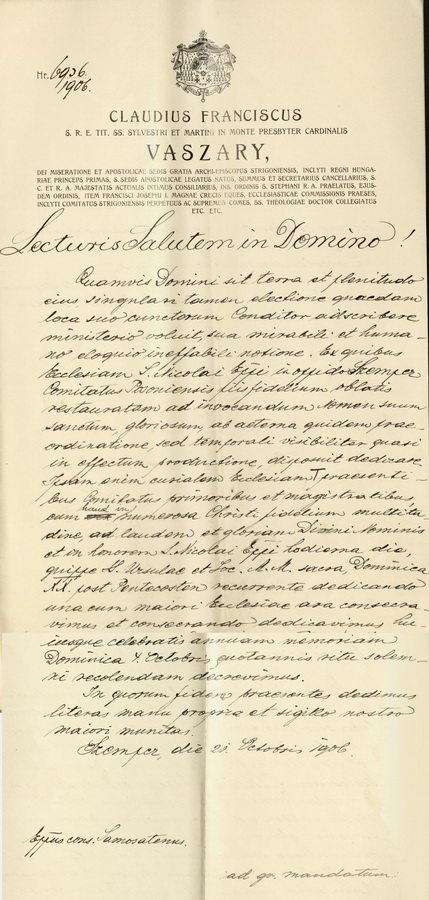 Nr. 6936.
1906.
CLAUDIUS FRANCISCUS
S. R. E. TIT. SS. SYLVESTRI ET MARTINI IN MONTE PRESBYTER CARDINALIS
VASZARY,
DEI MISERATIONE ET APOSTOLICAE SEDIS GRATIA ARCHI-EPISCOPUS STRIGONIENSIS, INCLYTI REGNI HUNGA-
RIAE PRINCEPS PRIMAS, S. SEDIS APOSTOLICAE LEGATUS NATUS, SUMMUS ET SECRETARIUS CANCELLARIUS, S.
C. ET R. A. MAJESTATIS ACTUALIS INTIMUS CONSILIARIUS, INS. ORDINIS S. STEPHANI R. A. PRAELATUS, EJUS-
DEM ORDINIS, ITEM FRANCISCI JOSEPHI I. MAGNAE CRUCIS EQUES, ECCLESIASTICAE COMMISSIONIS PRAESES,
INCLYTI COMITATUS STRIGONIENSIS PERPETUUS AC SUPREMUS COMES, SS. THEOLOGIAE DOCTOR COLLEGIATUS
ETC. ETC.
Lecturis Salutem in Domino!
Quamvis Domini sit terra et plenitudo
eius, singulari tamen electione quaedam
loca suo cunctorum Conditor adscribere
ministerio voluit, sua mirabili et huma-
no eloquio ineffabili notione. Ex quibus
Ecclesiam S. Nicolai Eppi in oppido Szempcz
Comitatus Posoniensis piis fidelium oblatis
restauratam ad invocandum Nomen suum
sanctum, gloriosum, ab aeterna quidem prae-
ordinatione, sed temporali visibiliter quasi
in effectum productione, disposuit dedicare.
Ipsam enim curialem Ecclesiam praesenti-
bus Comitatus primoribus et magistratibus,
cum haud in numerosa Christi fidelium multitu-
dine, ad laudem et gloriam Divini Nominis
et in honorem S. Nicolai Eppi hodierna die,
quippe S. Ursulae et Soc. M. M. sacra, Dominica
XX. post Pentecosten recurrente dedicando
una cum maiori Ecclesiae ara consecra-
vimus et consecrando dedicavimus hu-
iusque celebratis annuam memoriam
Dominica 4. Octobris quotannis ritu solem-
ni recolendam decrevimus.
In quorum fidem praesentes dedimus
literas manu propria et sigillo nostro
maiori munitas.
Szempcz, die 21. Octobris 1906.
Eppus cons. Samosatenus.
ad gr. mandatum.